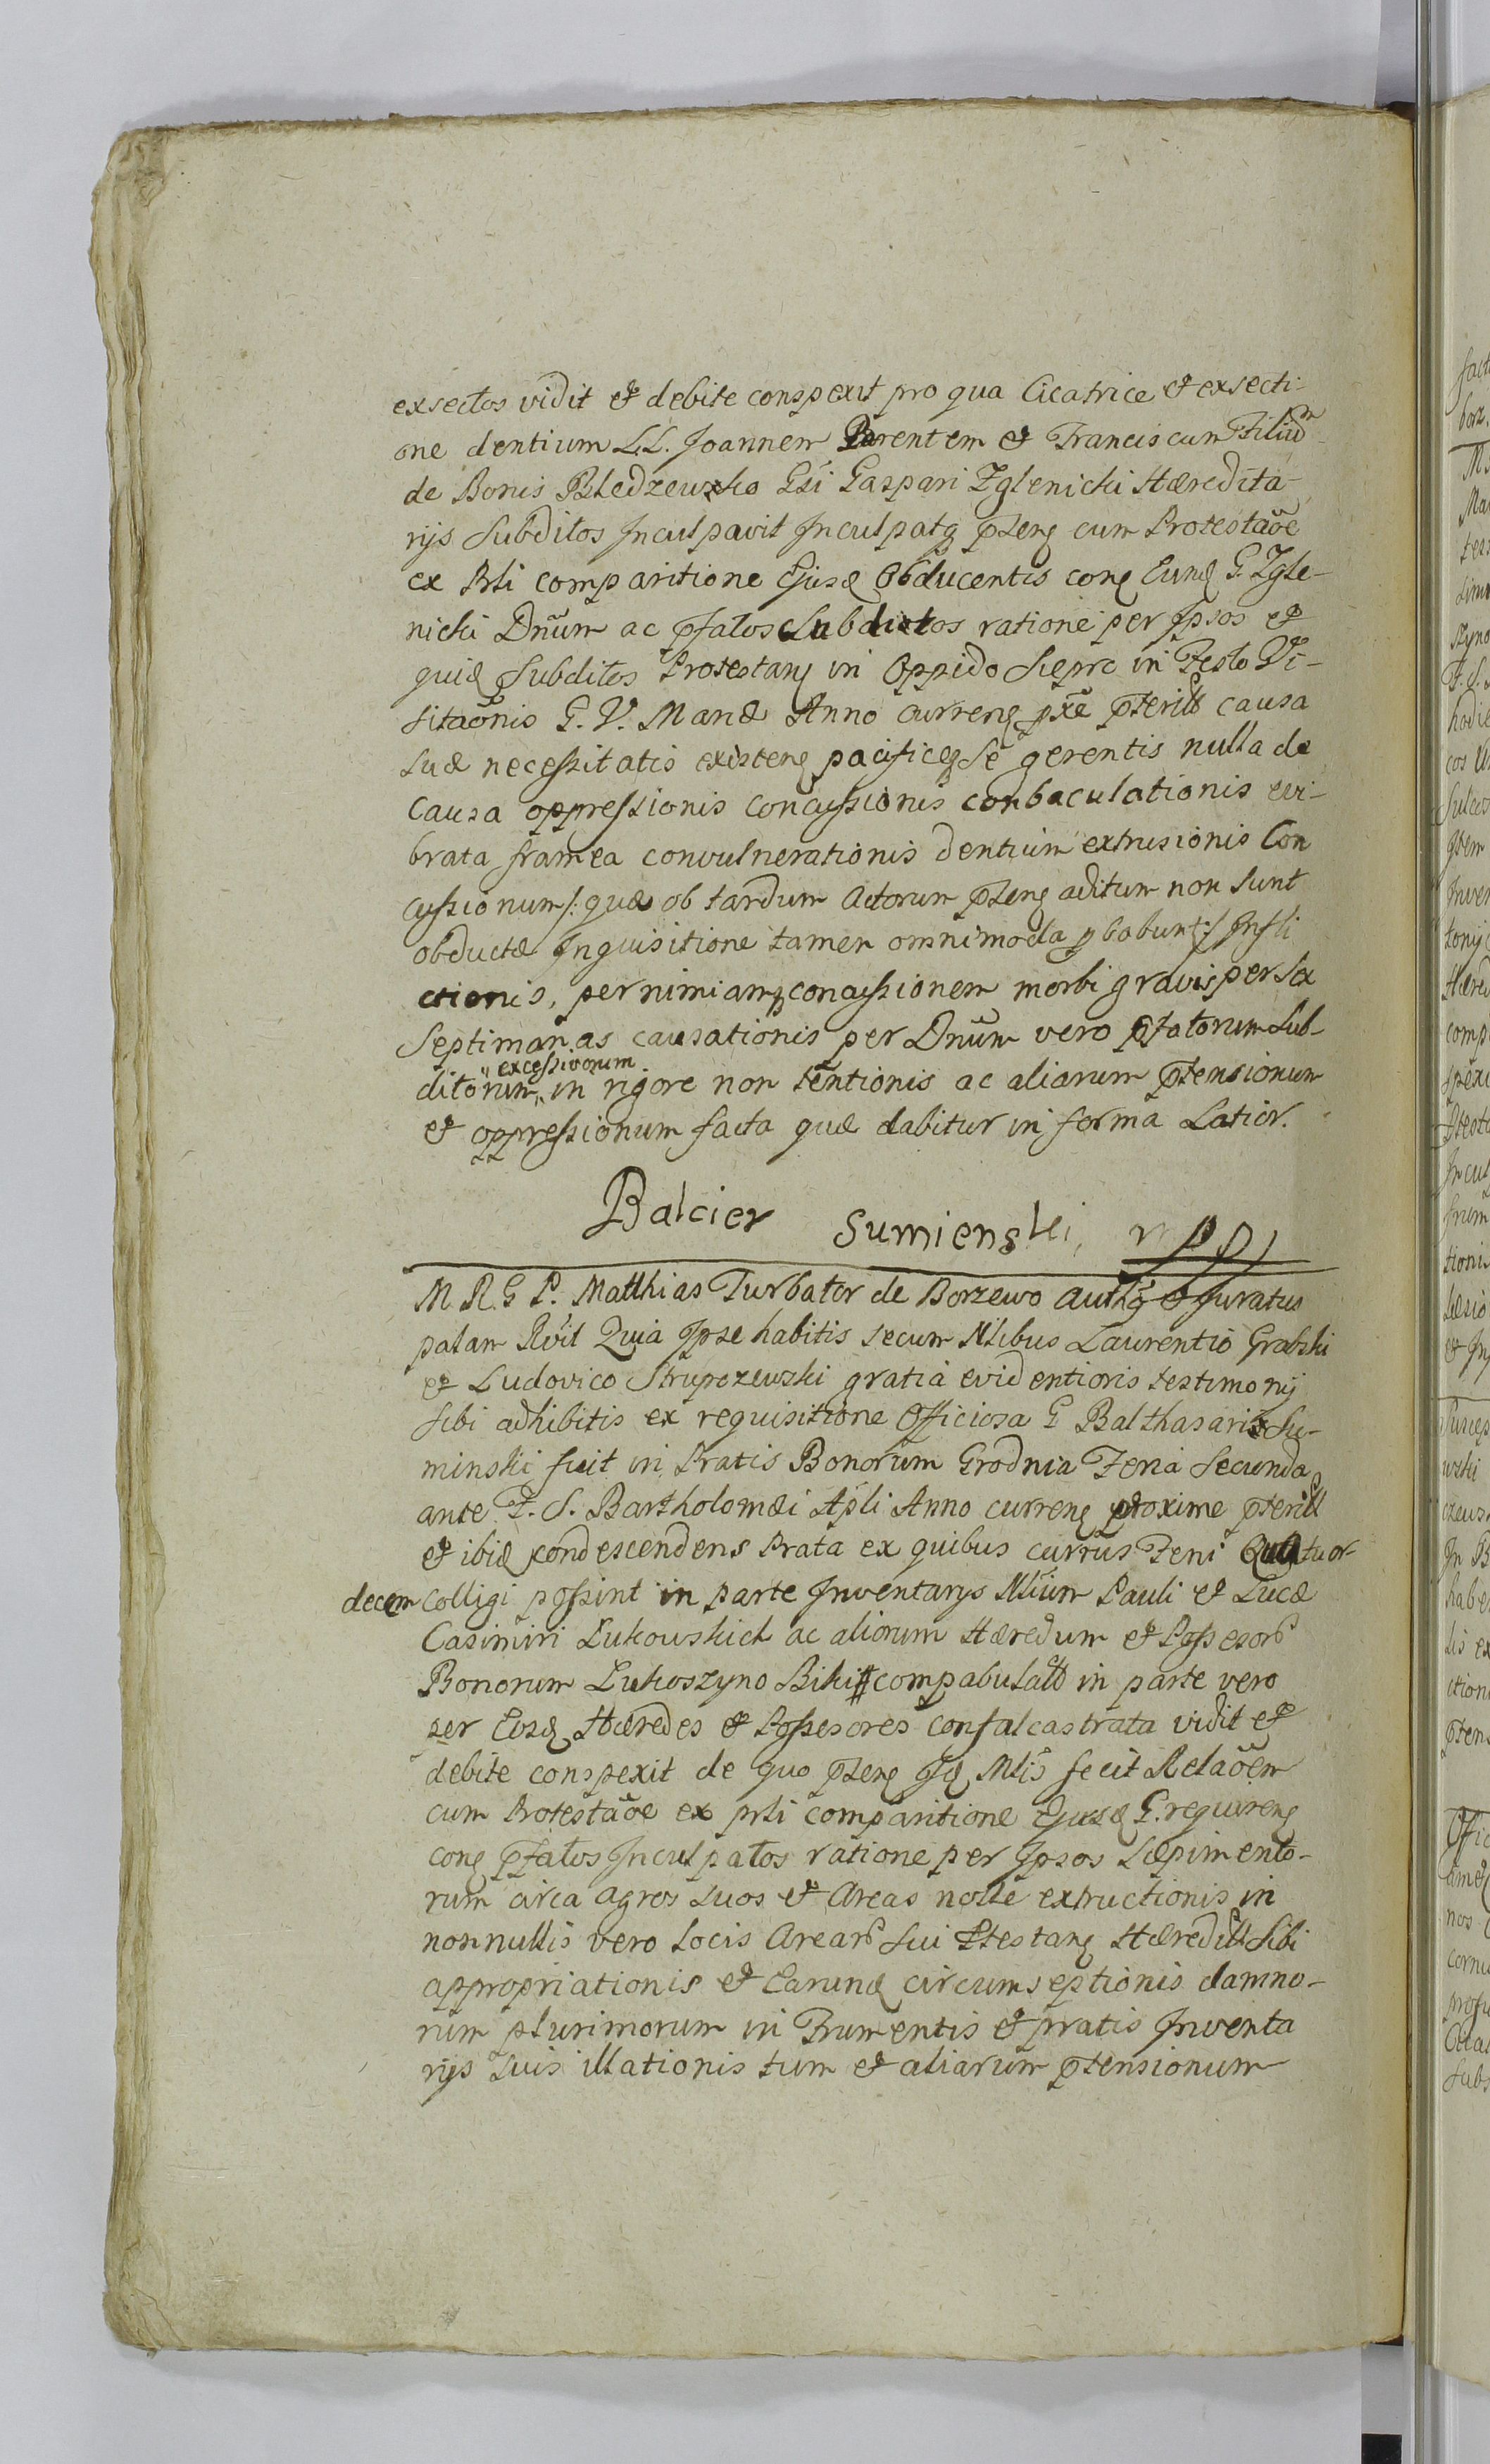 exsectos vidit et debite conspexit pro qua Cicatrice et exsecti-
one dentium LL. Joannem Parentem et Franciscum Filiũm
de Bonis Bledzewsko Gsi Gaspari Zglenicki Hæredita-
rijs Subditos Inculpavit Inculpatq pteng cum Protestaõe
ex Prli comparitione Ejusd Obducentis cong Eund G. Zgle-
nicki Dnũm ac pfatos Subditos ratione per Ipsos et
quid Subditos Protestang in Oppido Sieprc in Festo Vi-
sitaõnis G. V. Mariæ Anno curreng pxẽ pterill causa
suæ necessitatis existeng pacificeq Se gerentis nulla de
Causa oppressionis concussionis conbaculationis evi-
brata framea convulnerationis dentium extrusionis Con
cussionum /: quæ ob tardum Actorum pteng aditum non sunt
obductæ Inquisitione tamen omnimoda pbabunt :/ Infli
ctionis, per nimiamq concussionem morbi gravis per sex
Septimanas causationis per Dnũm vero pfatorum Sub-
ditorum " excessivorum " in rigore non tentionis ac aliarum ptensionum
et oppressionum facta quæ dabitur in forma Latior.
Balcier Sumienski, mpp
M. R. G P. Matthias Turbator de Borzewo authq et juratus
palam Rvit Quia Ipse habitis secum Nlibus Laurentio Grabski
et Ludovico Strupczewski gratia evidentioris testimonij
sibi adhibitis ex requisitione Officiosa G Balthasaris Su-
minski fuit in Pratis Bonorum Grodnia Feria Secunda
ante F. S. Bartholomæi Apli Anno curreng proxime pterill
et ibid condescendens Prata ex quibus currus Feni Quatuor-
decem colligi possint in parte Inventarys Nlium Pauli et Lucæ
Casimiri Lukowskich ac aliorum Hæredum et Possesor
Bonorum Lukoszyno Biki compabulatt in parte vero
per Eosd Hæredes et Possesores confalcastrata vidit et
debite conspexit de quo pteng Id Mlis fecit Relaõem
cum Protestaõe ex prli comparitione Ejusd G. requireng
cong pfatos Inculpatos ratione per Ipsos Sæpimento-
rum circa agros suos et Areas nolle extructionis in
nonnullis vero Locis Arear Sui Ptestang Hæredill Sibi
appropriationis et Earund circumseptionis damno-
rum plurimorum in Frumentis et pratis Inventa
rijs suis illationis tum et aliarum ptensionum